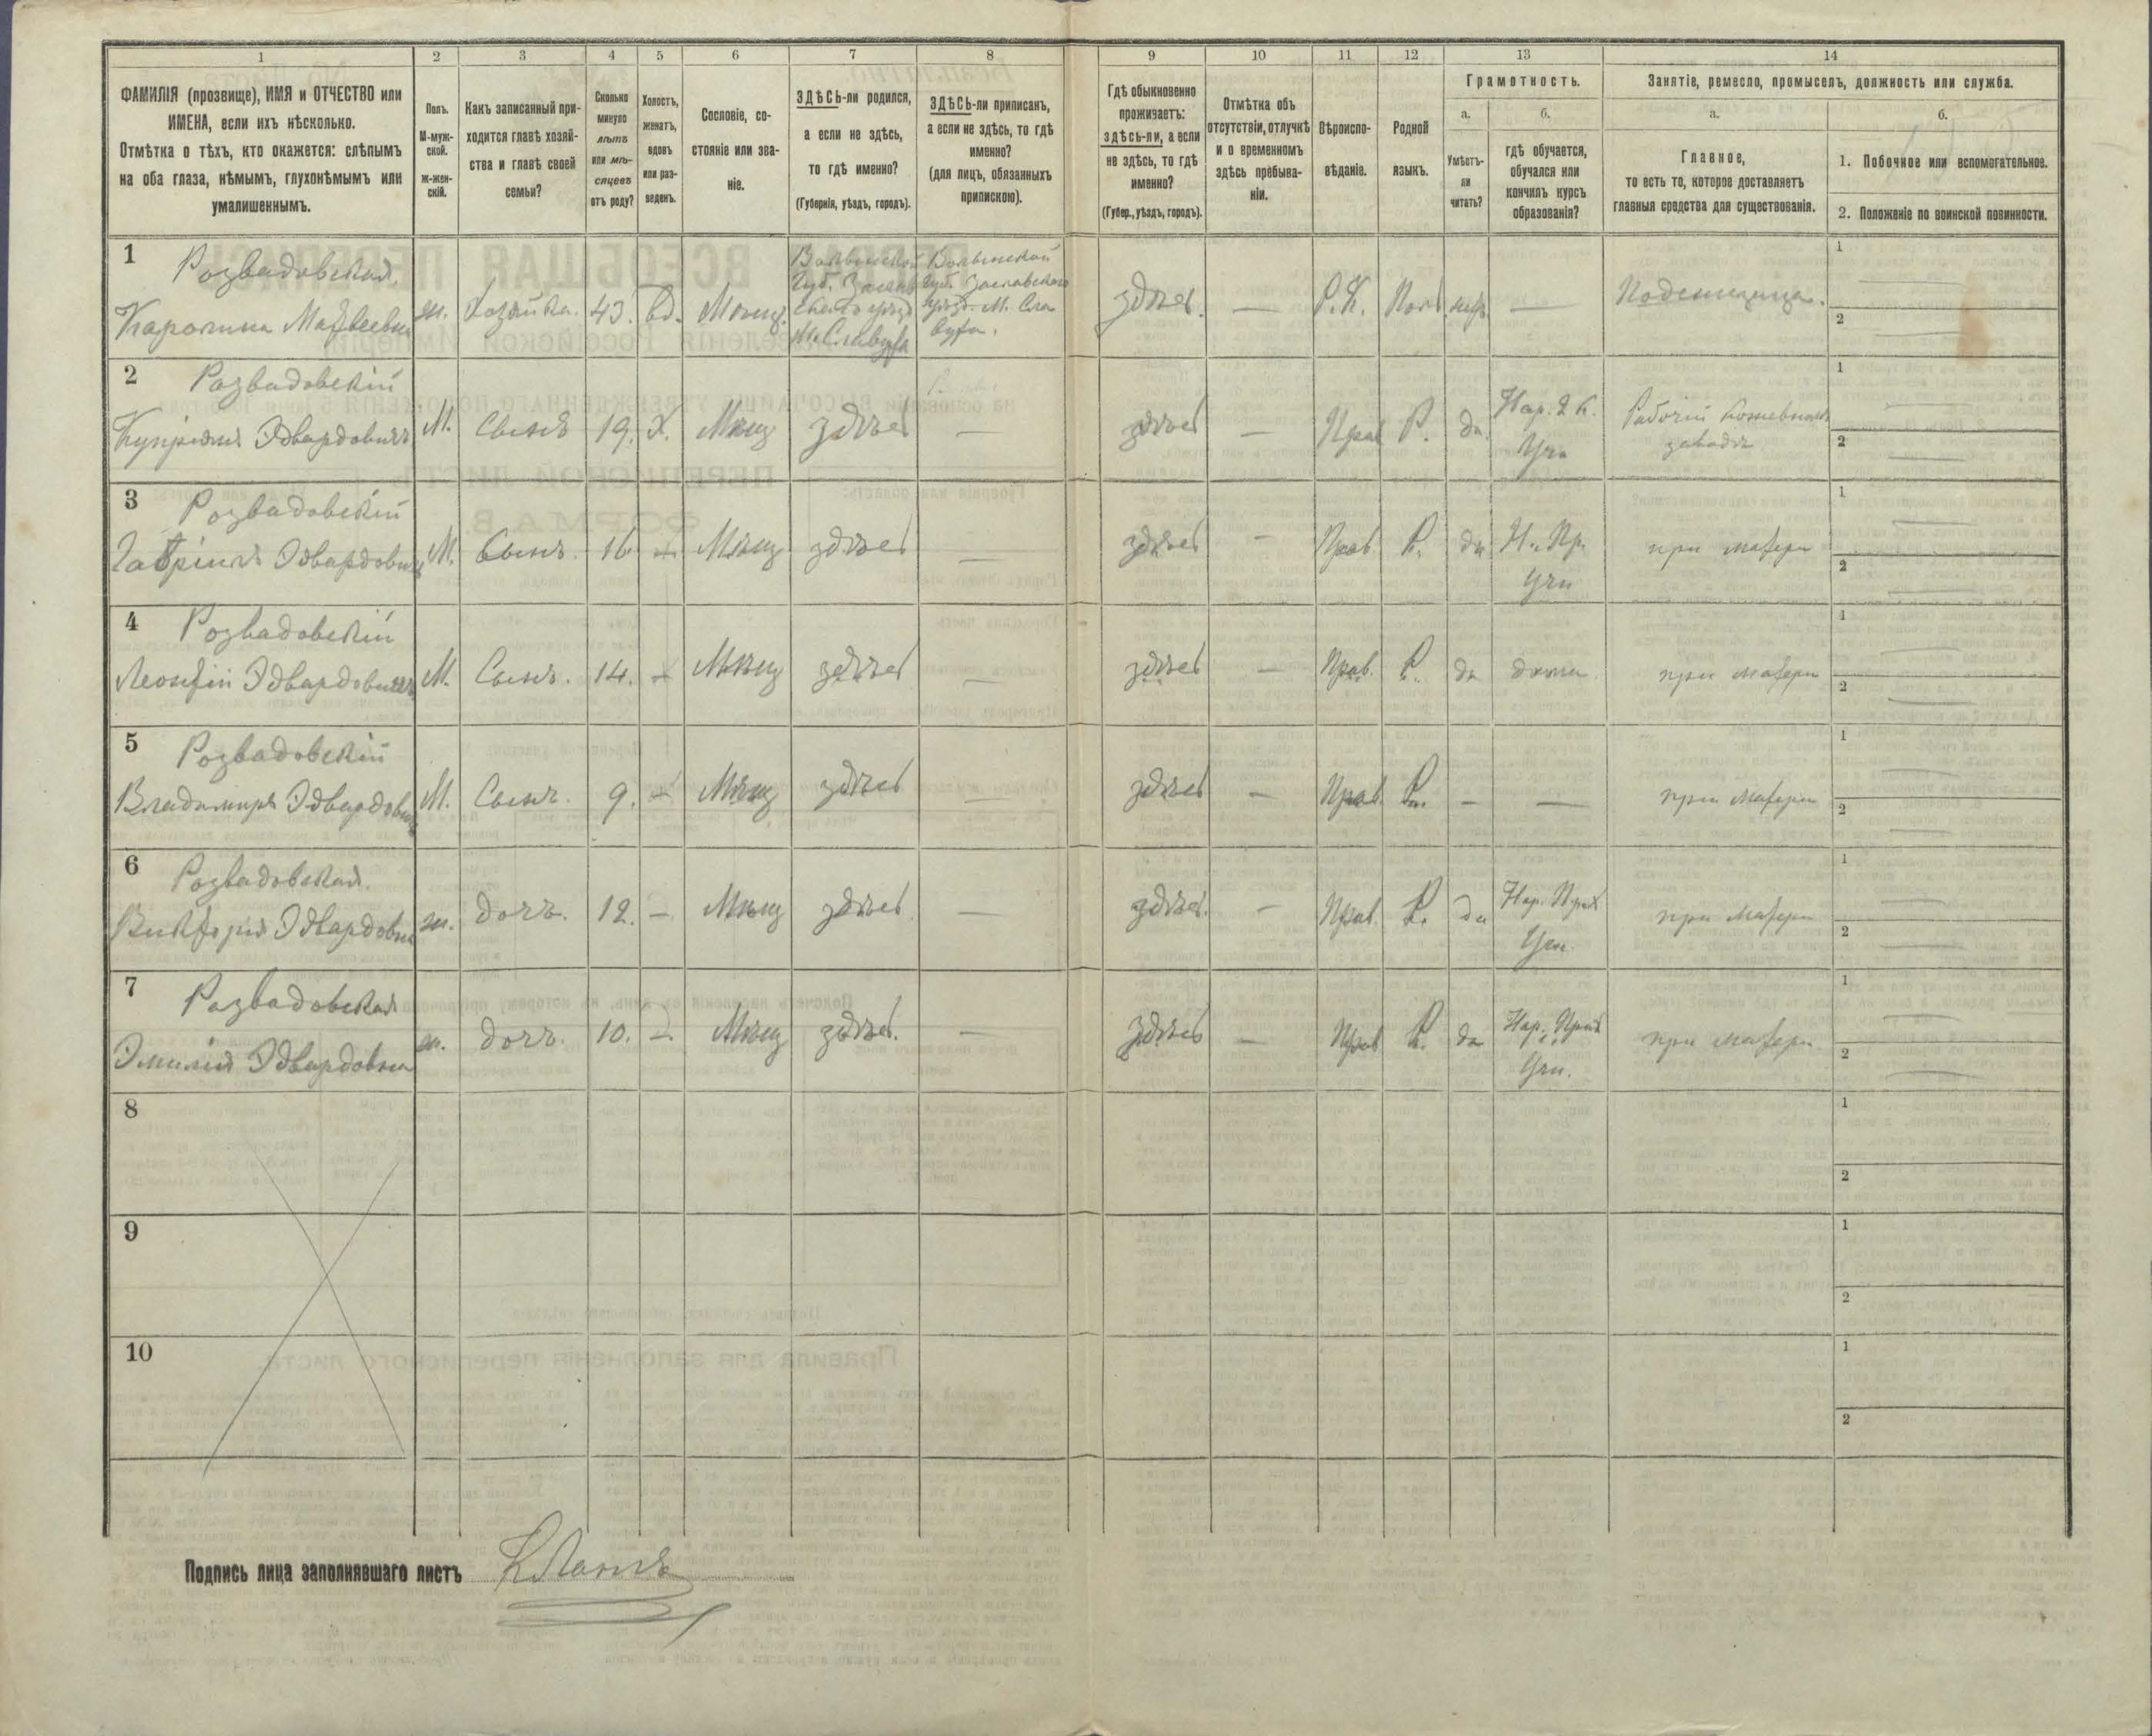 1 2 3 4 5 6 7 8 9 10 11 12 13 14
ФАМИЛІЯ (прозвище), ИМЯ и ОТЧЕСТВО или
ИМЕНА, если ихъ нѣсколько.
Отмѣтка о тѣхъ, кто окажется: слѣпымъ
на оба глаза, нѣмымъ, глухонѣмымъ или
умалишеннымъ.
Полъ.
М-муж-
ской.
ж-жен-
скій.
Какъ записанный при-
ходится главѣ хозяй-
ства и главѣ своей
семьи?
Сколько
минуло
лѣтъ
или мѣ-
сяцевъ
отъ роду?
Холостъ,
женатъ,
вдовъ
или раз-
веденъ.
Сословіе, со-
стояніе или зва-
ніе.
ЗДѢСЬ-ли родился,
а если не здѣсь,
то гдѣ именно?
(Губернія, уѣздъ, городъ).
ЗДѢСЬ-ли приписанъ,
а если не здѣсь, то гдѣ
именно?
(для лицъ, обязанныхъ
припискою).
Гдѣ обыкновенно
проживаетъ:
здѣсь-ли, а если
не здѣсь, то гдѣ
именно?
(Губер., уѣздъ, городъ).
Отмѣтка объ
отсутствіи, отлучкѣ
и о временномъ
здѣсь пребыва-
ніи.
Вѣроиспо-
вѣданіе.
Родной
языкъ.
Грамотность.
а.
Умѣетъ-
ли
читать?
б.
гдѣ обучается,
обучался или
кончилъ курсъ
образованія?
Занятіе, ремесло, промыселъ, должность или служба.
а.
Главное,
то есть то, которое доставляетъ
главныя средства для существованія.
б.
1. Побочное или вспомогательное.
2. Положеніе по воинской повинности.
1 Розвадовская
Каролина Матвеевна
ж. Хозяйка. 43. вд. Мѣщ.
Волынской
Губ. Заслав
скаго уѣзд
М. Славута
Волынской
Губ. Заславскаго
уѣзд. М. Сла
вута.
здѣсь. — Р.К. Пол. нѣт — Поденщица.
1
2
2 Розвадовскій
Купріянъ Эдвардовичъ
М. Сынъ 19. Х. Мѣщ здѣсь —
здѣсь — Прав Р. да.
Нар. 2 к.
Учи
Рабочій кожевном
заводѣ
1
2
3 Розвадовскій
Гавріилъ Эдвардович
М. Сынъ. 16 Мѣщ здѣсь —
здѣсь — Прав. Р. да
Н. Пр.
Учи
при матери
1
2
4 Розвадовскій
Леонтій Эдвардовичъ
М. Сынъ. 14. Мѣщ здѣсь —
здѣсь — Прав. Р. да дома. при матери
1
2
5 Розвадовскій
Владимиръ Эдвардович
М. Сынъ. 9. Мѣщ здѣсь —
здѣсь — Прав. Р. — — при матери
1
2
6 Розвадовская.
Викторія Эдвардовна
ж. дочь. 12. — Мѣщ здѣсь —
здѣсь. — Прав. Р. да
Нар. Прих
Учи.
при матери
1
2
7 Розвадовская
Эмилія Эдвардовна
ж. дочь. 10. Мѣщ здѣсь. —
здѣсь — Прав Р. да
Нар. Прих
Учи.
при матери.
1
2
8
1
2
9
1
2
10
1
2
Подпись лица заполнявшаго листъ